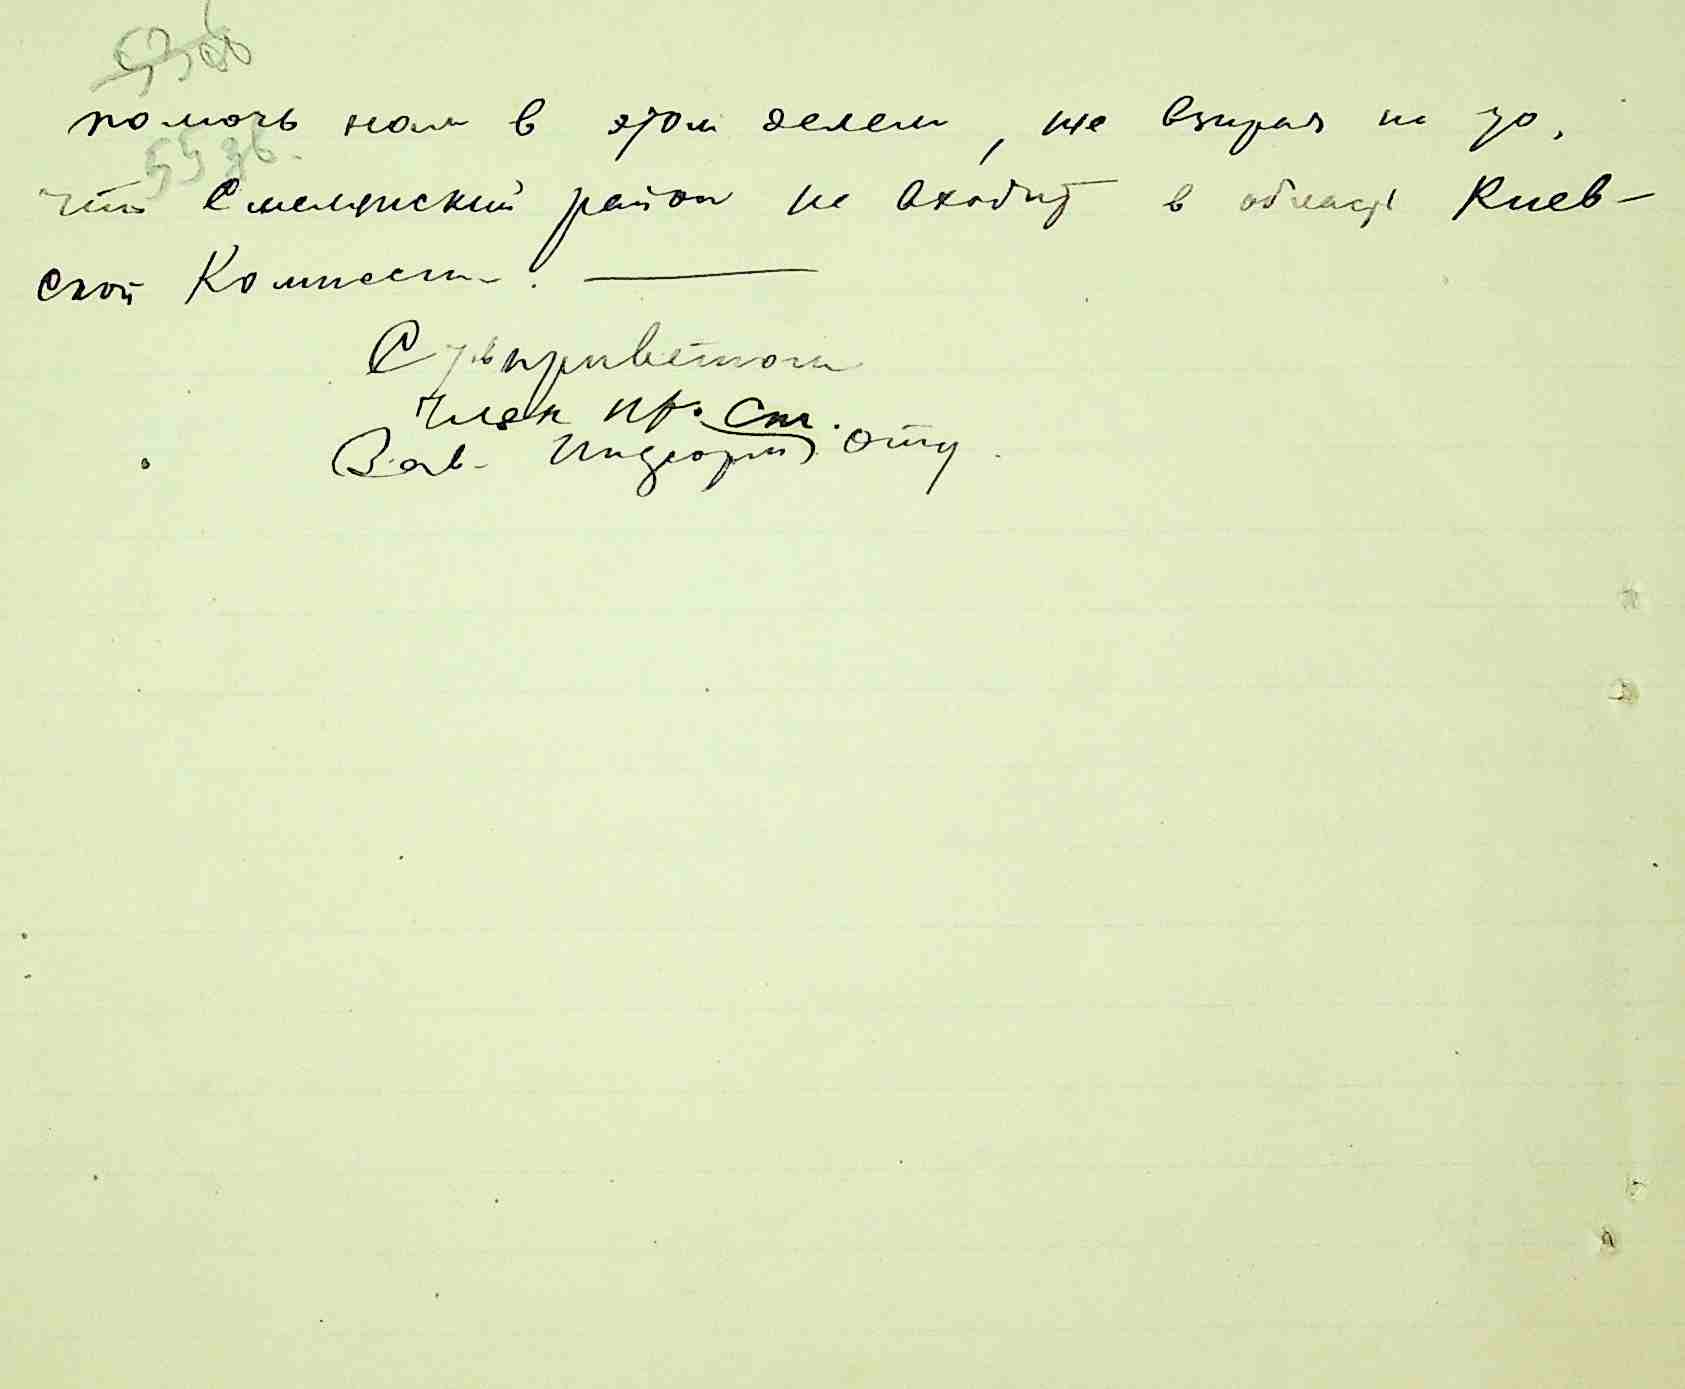 помочь нам в этом делем, не взирая на то,
что Смелянский район не входит в област Киев-
ской Комиссии.
С тов приветом
Член пр. Ст.
Зав. Информ Отд.